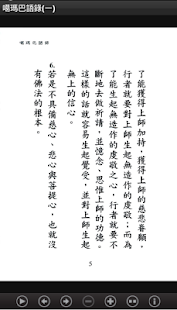 噶瑪巴語錄(一)
噶瑪巴語錄
了能獲得上師加持，獲得上師的慈悲眷顧，
行者就要對上師生起無造作的虔敬；而為
了能生起無造作的虔敬之心，行者就要不
斷地去做祈禱，並憶念、思惟上師的功德。
這樣的話就容易生起覺受，並對上師生起
無上的信心。
6.若是不具備慈心、悲心與菩提心，也就沒
有佛法的根本。
5